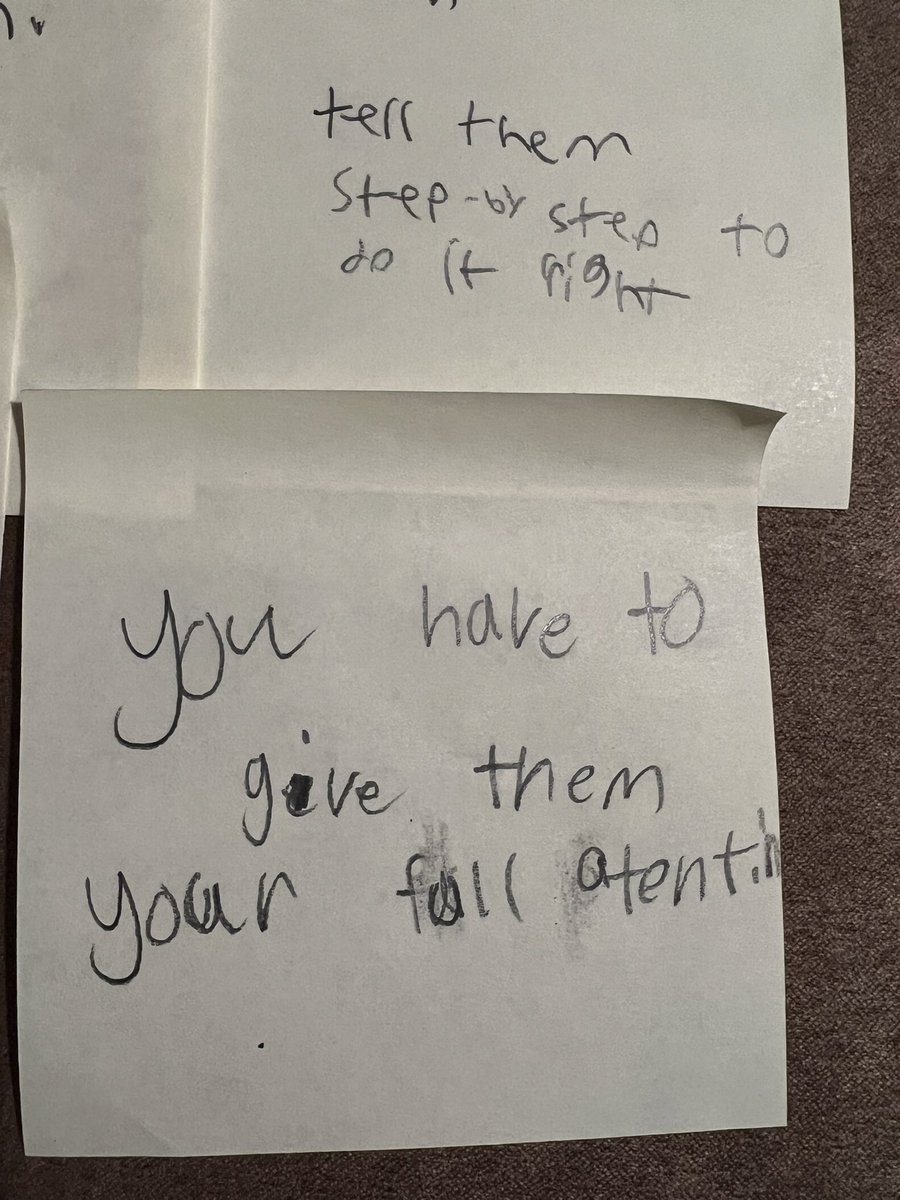 tell them
step-by step to
do it right
you have to
give them
your full atentin